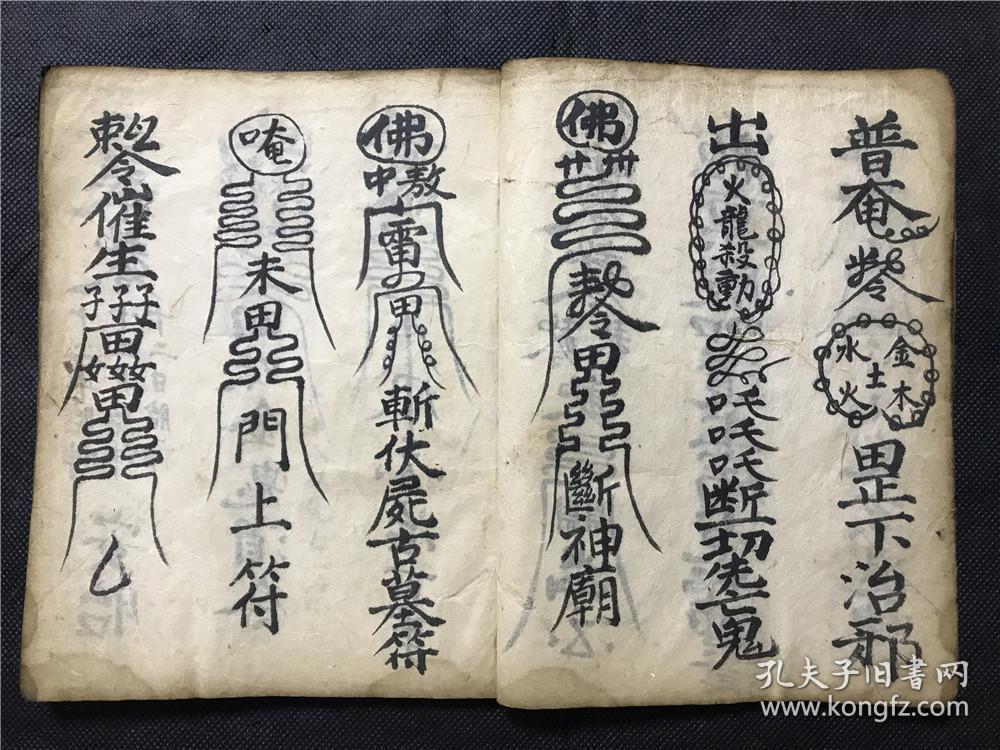 普奄 金木水火土 罡下治邪
出 火龍殺動 吒吒吒断一切先亡鬼
佛 令 斷神廟
佛 中敖 雷 斬伏屍古墓符
唵 未 門上符
勅令催生子子子女女女
孔夫子旧书网
www.kongfz.com